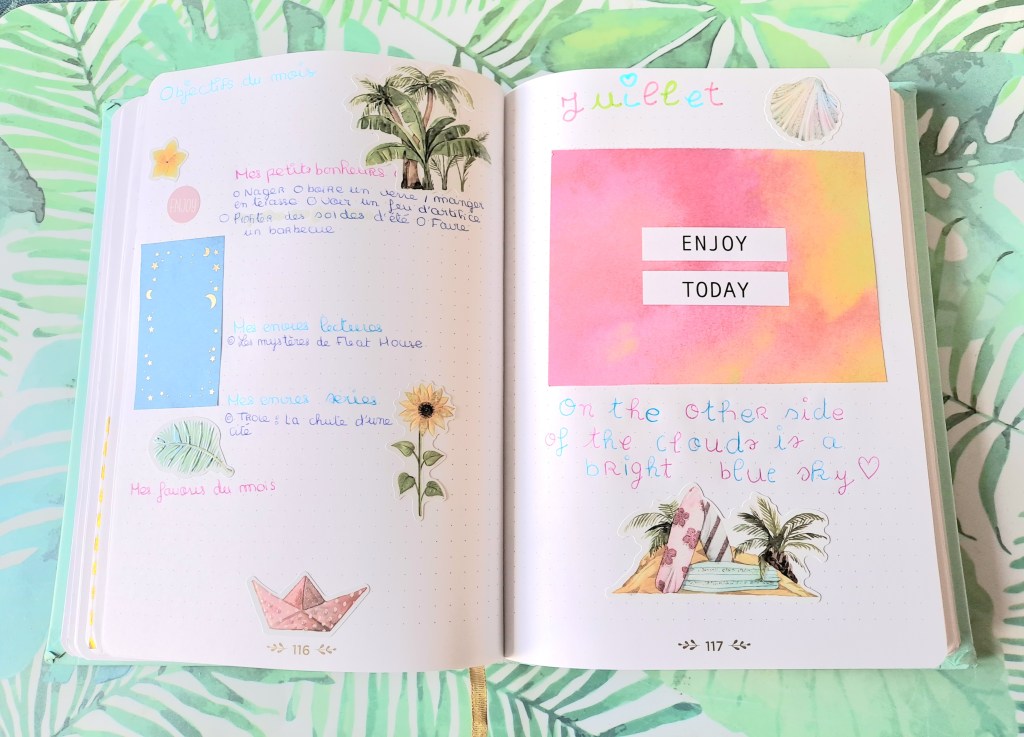 Objectifs du mois
Mes petits bonheurs :
O Nager O boire un verre / manger
en terasse O voir un feu d'artifice
O Profiter des soldes d'été O Faire
un barbecue
ENJOY
Mes envies lectures
O Les mystères de Fleat House
Mes envies séries
O Troie : La chute d'une
cité
Mes favoris du mois
116
Juillet
ENJOY
TODAY
On the other side
of the clouds is a
bright blue sky ♡
117